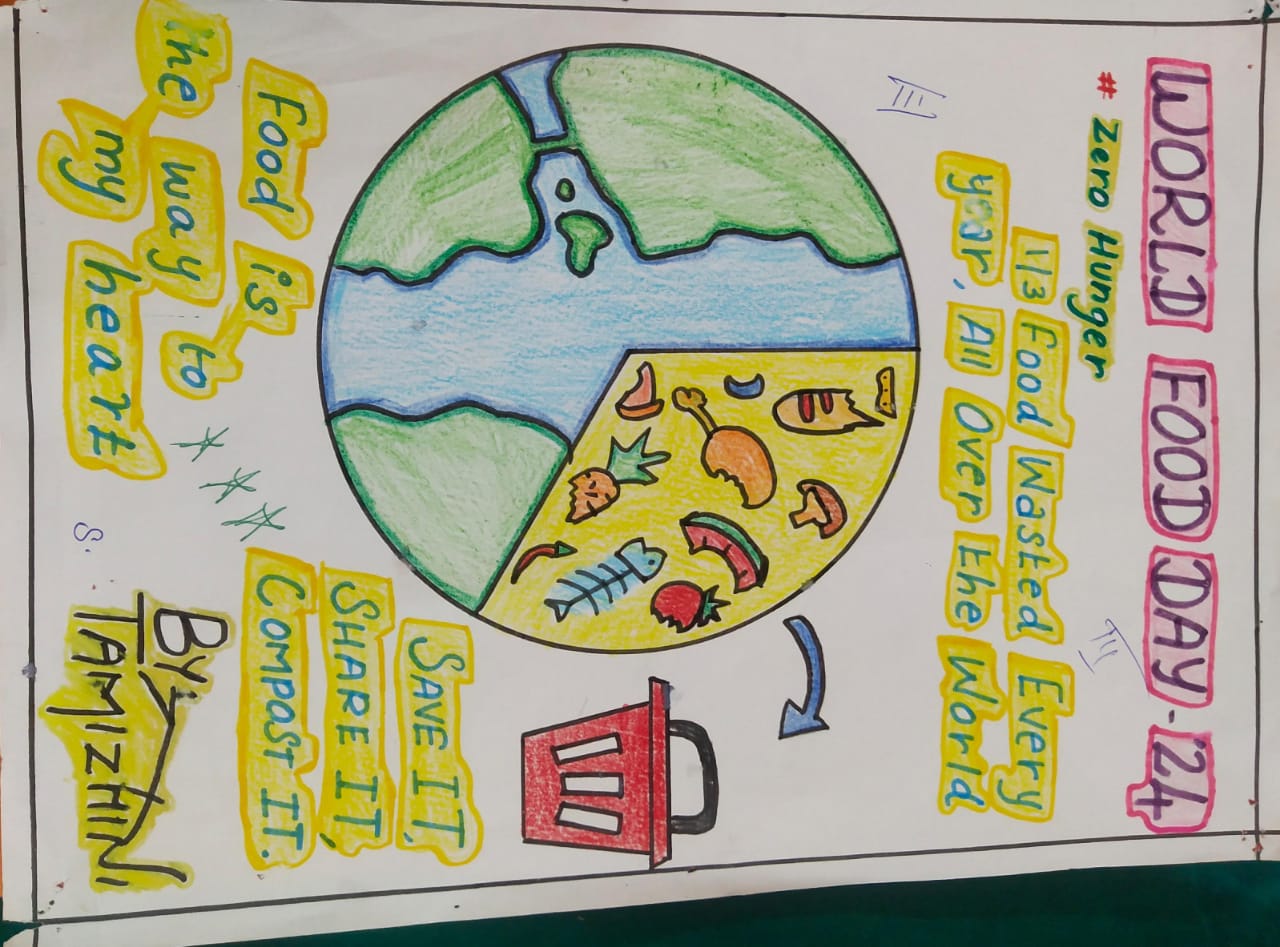 WORLD FOOD DAY-'24
# Zero Hunger
1/3 Food Wasted Every
year, All Over the World
III
III
Food is
the way to
my heart
SAVE IT,
SHARE IT,
COMPOST IT.
S.
BY,
TAMIZHINI